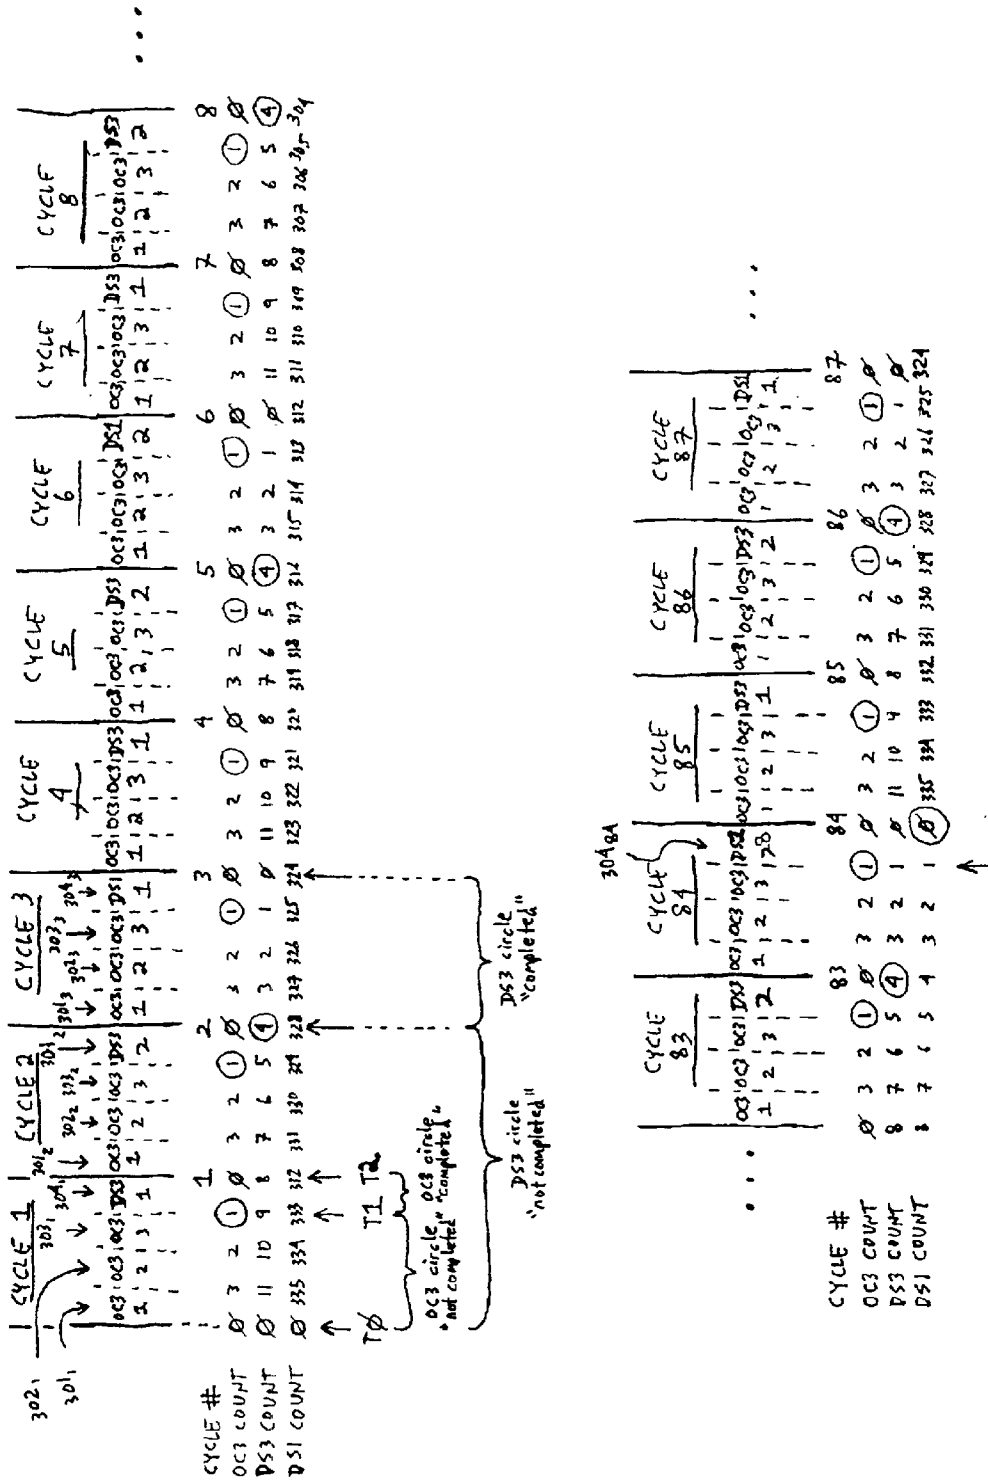 CYCLE 1 CYCLE 2 CYCLE 3 CYCLE 4 CYCLE 5 CYCLE 6 CYCLE 7 CYCLE 8
302₁ 303₁ 304₁ 301₂ 302₂ 303₂ 303₂ 301₃ 302₃ 303₃ 304₃
301₁
OC3 OC3 OC3 DS3 OC3 OC3 OC3 DS3 OC3 OC3 OC3 DS1 OC3 OC3 OC3 DS3 OC3 OC3 OC3 DS3 OC3 OC3 OC3 DS1 OC3 OC3 OC3 DS3 OC3 OC3 OC3 DS3 ...
1 2 3 1 1 2 3 2 1 2 3 1 1 2 3 1 1 2 3 2 1 2 3 2 1 2 3 1 1 2 3 2
CYCLE # 1 2 3 4 5 6 7 8
OC3 COUNT Ø 3 2 1 Ø 3 2 1 Ø 3 2 1 Ø 3 2 1 Ø 3 2 1 Ø 3 2 1 Ø 3 2 1 Ø 3 2 1 Ø
DS3 COUNT Ø 11 10 9 8 7 6 5 4 3 2 1 Ø 11 10 9 8 7 6 5 4 3 2 1 Ø 11 10 9 8 7 6 5 4
DS1 COUNT Ø 335 334 333 312 331 330 329 328 327 326 325 324 323 322 321 320 319 318 317 316 315 314 313 312 311 310 309 308 307 306 305 304
TØ T1 T2
OC3 circle "not completed"
OC3 circle "completed"
DS3 circle "not completed"
DS3 circle "completed"
304₈₄
CYCLE 83 CYCLE 84 CYCLE 85 CYCLE 86 CYCLE 87
... OC3 OC3 OC3 DS3 OC3 OC3 OC3 DS1 OC3 OC3 OC3 DS3 OC3 OC3 OC3 DS3 OC3 OC3 OC3 DS1 ...
1 2 3 2 1 2 3 28 1 2 3 1 1 2 3 2 1 2 3 1
CYCLE # 83 84 85 86 87
OC3 COUNT Ø 3 2 1 Ø 3 2 1 Ø 3 2 1 Ø 3 2 1 Ø 3 2 1 Ø
DS3 COUNT 8 7 6 5 4 3 2 1 Ø 11 10 9 8 7 6 5 4 3 2 1 Ø
DS1 COUNT 8 7 6 5 4 3 2 1 Ø 335 334 333 332 331 330 329 328 327 326 325 324